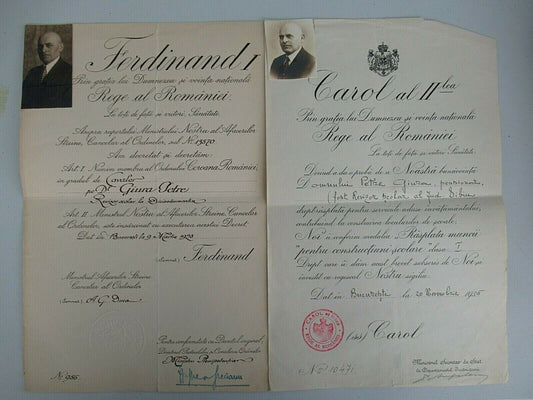 Ferdinand I
Prin grația lui Dumnezeu și voința națională
Rege al României.
La toți de față și viitori, Sănătate.
Asupra raportului Ministrului Nostru al Afacerilor
Streine, Cancelar al Ordinelor, sub Nr.
Am decretat și decretăm:
Art. I. Numim membru al Ordinului Coroana României,
în gradul de Cavaler
pe Dl. Giura Petre
Art. II. Ministrul Nostru al Afacerilor Streine, Cancelar
al Ordinelor, este însărcinat cu executarea acestui Decret.
Dat în București la 9
Ferdinand
Ministrul Afacerilor Streine
Cancelar al Ordinelor
(semnat) I. G. Duca
Pentru conformitate cu Decretul original,
Nº 986.
Carol al II lea
Prin grația lui Dumnezeu și voința națională
Rege al României
La toți de față și viitori Sănătate.
Noastră bunăvoință
Domnului Petre Giura, pensionar,
fost Revizor școlar al jud. Sibiu
drept răsplată pentru serviciile aduse învățământului,
contribuind la construirea localurilor de școală.
Noi îi conferim medalia "Răsplata muncii
pentru construcțiuni școlare" clasa I
Drept care îi dăm acest brevet subscris de Noi și
investit cu regescul Nostru sigiliu.
Dat în București la 20
CAROL AL II LEA
REGE AL ROMÂNIEI
(ss) Carol
Nº 10471
Ministrul Secretar de Stat